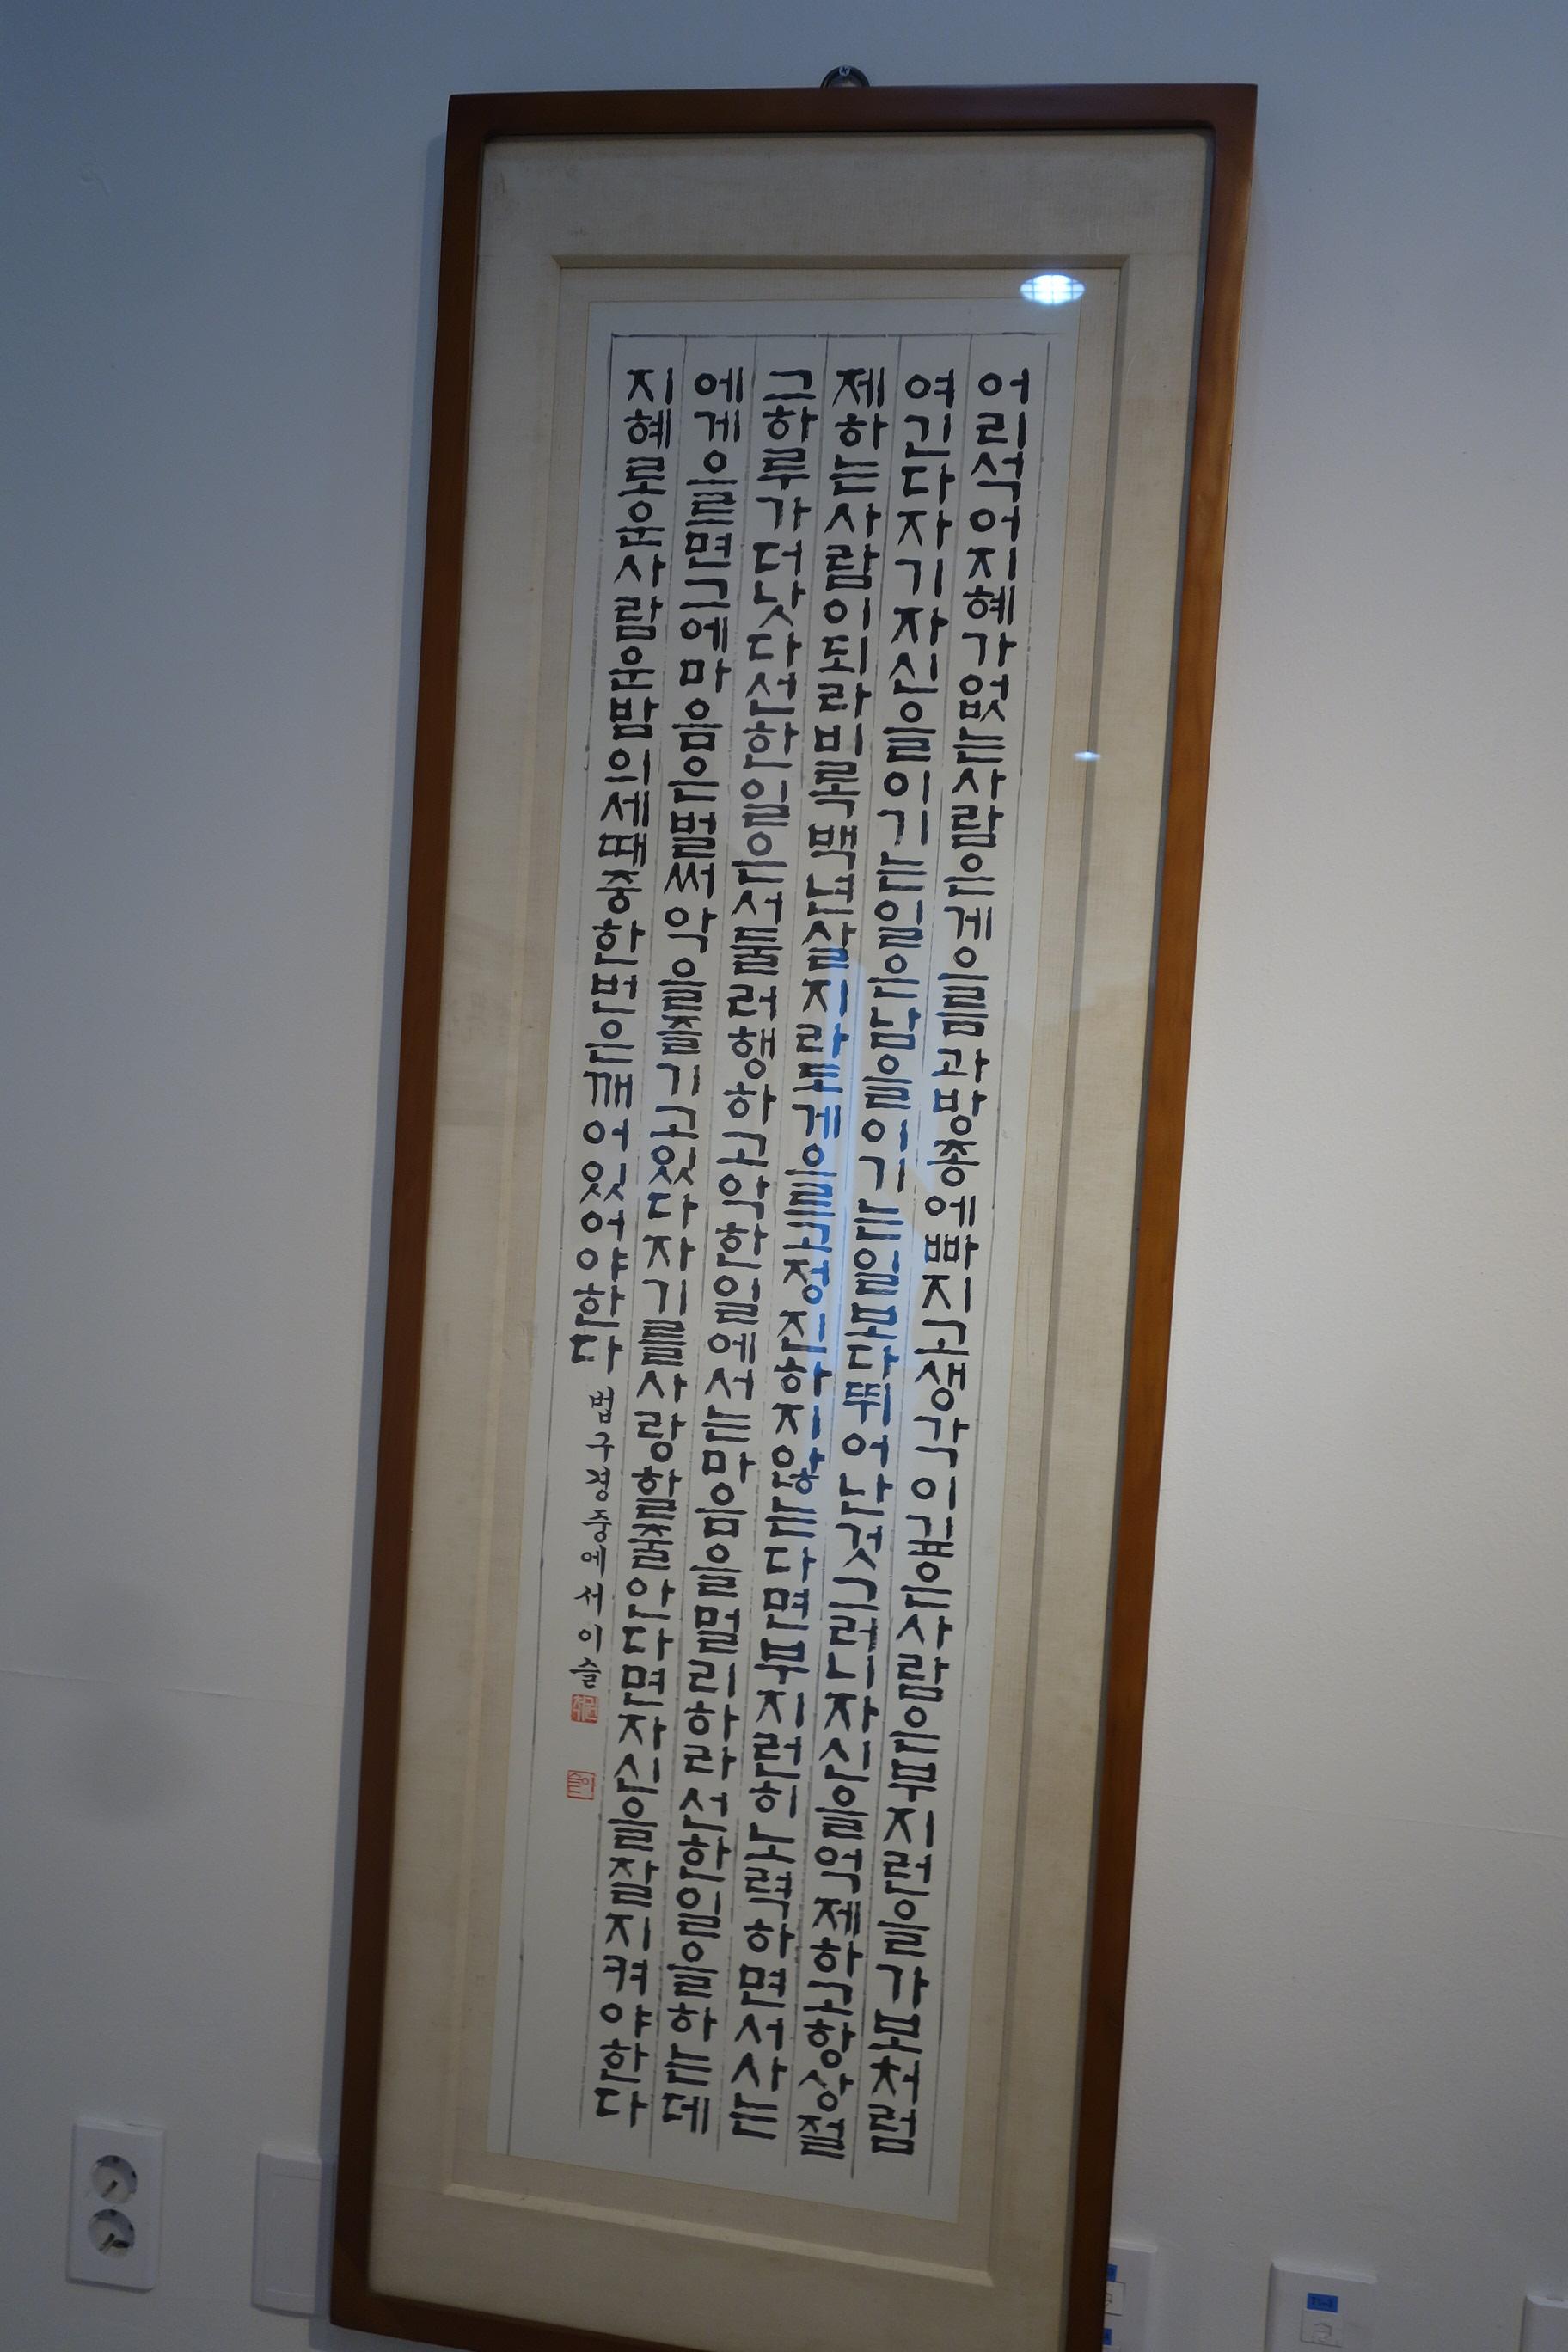 어리석어지혜가없는사람은게으름과방종에빠지고생각이깊은사람은부지런을가보처럼
여긴다자기자신을이기는일은남을이기는일보다뛰어난것그러니자신을억제하고항상절
제하는사람이되라비록백년살지라도게으르고정진하지않는다면부지런히노력하면서사는
그하루가더낫다선한일은서둘러행하고악한일에서는마음을멀리하라선한일을하는데
에게으르면그에마음은벌써악을즐기고있다자기를사랑할줄안다면자신을잘지켜야한다
지혜로운사람은밤의세때중한번은깨어있어야한다 법구경중에서이슬